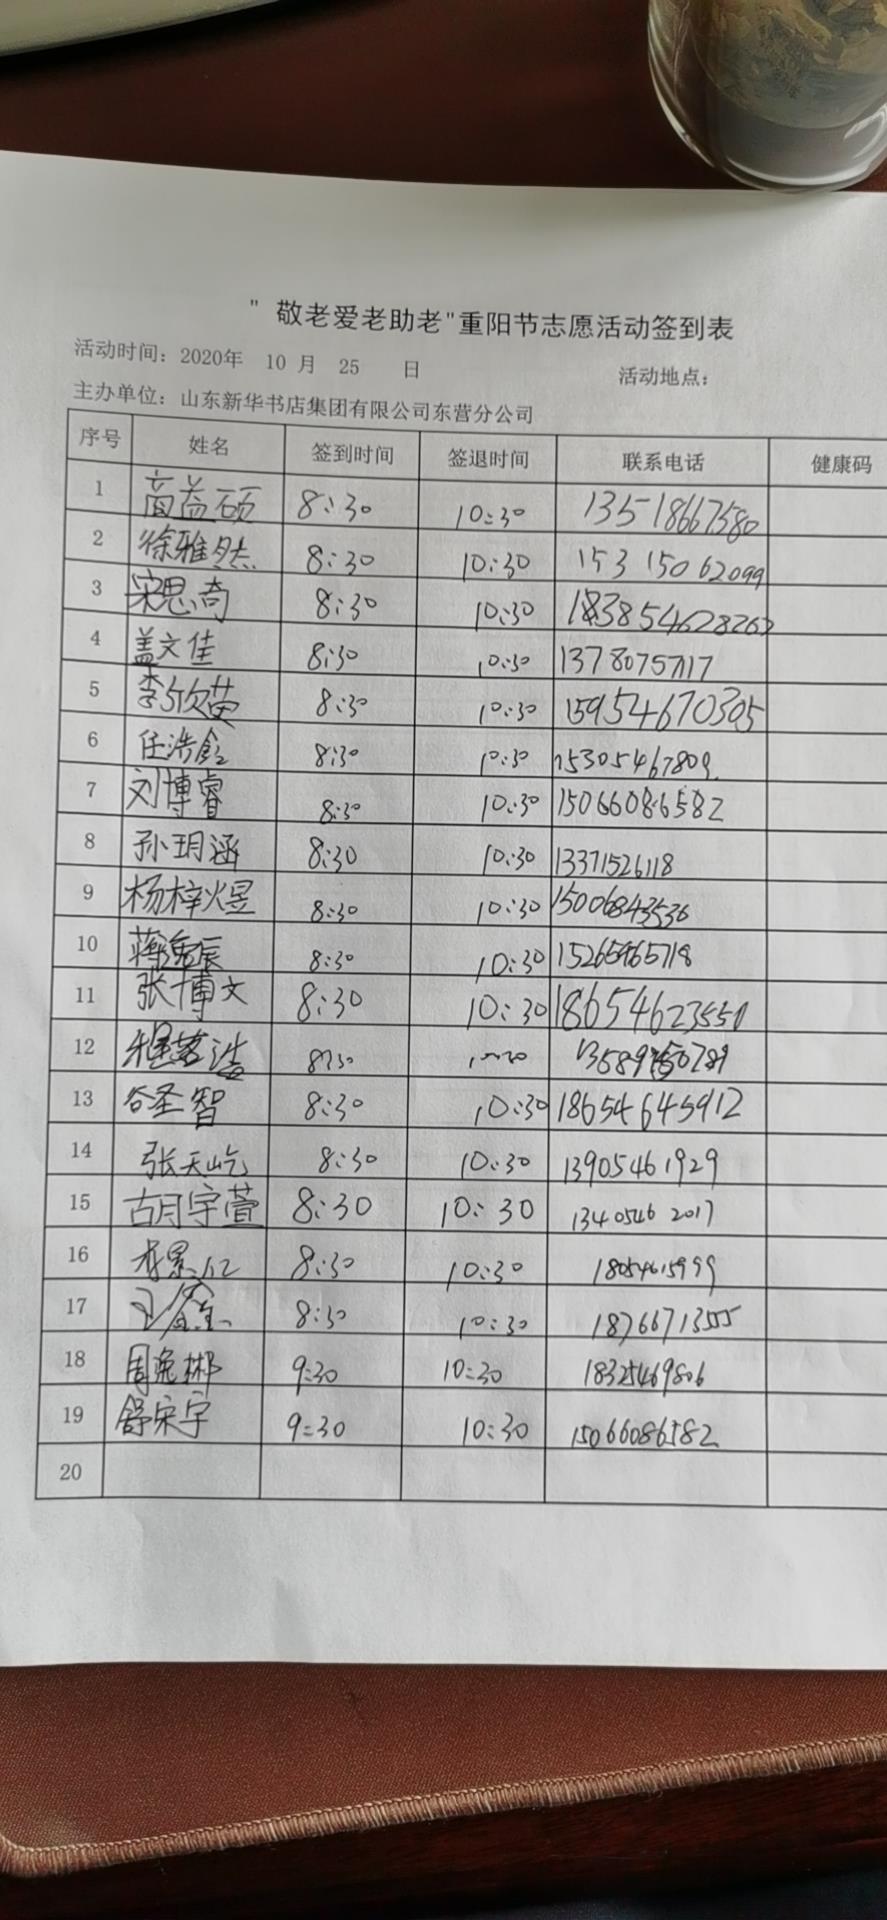 " 敬老爱老助老"重阳节志愿活动签到表
活动时间：2020年 10 月 25 日 活动地点：
主办单位：山东新华书店集团有限公司东营分公司
序号 姓名 签到时间 签退时间 联系电话 健康码
1 益硕 8:30 10:30 13518667580
2 徐雅然 8:30 10:30 15315062099
3 宋思奇 8:30 10:30
4 盖文佳 8:30 10:30 13780757117
5 李欣苗 8:30 10:30 15954670305
6 任浩 8:30 10:30 15305467809
7 刘博睿 8:30 10:30 15066086582
8 孙玥涵 8:30 10:30 13371526118
9 杨梓煜 8:30 10:30 15006843536
10 蒋逸辰 8:30 10:30 15265965718
11 张博文 8:30 10:30 18654623551
12 8:30
13 谷圣智 8:30 10:30 18654645912
14 张天屹 8:30 10:30 13905461929
15 胡宇萱 8:30 10:30 13405462017
16 8:30 10:30 18054615999
17 8:30 10:30 18766713555
18 周逸彬 9:30 10:30 18325469806
19 舒宋宇 9:30 10:30 15066086582
20